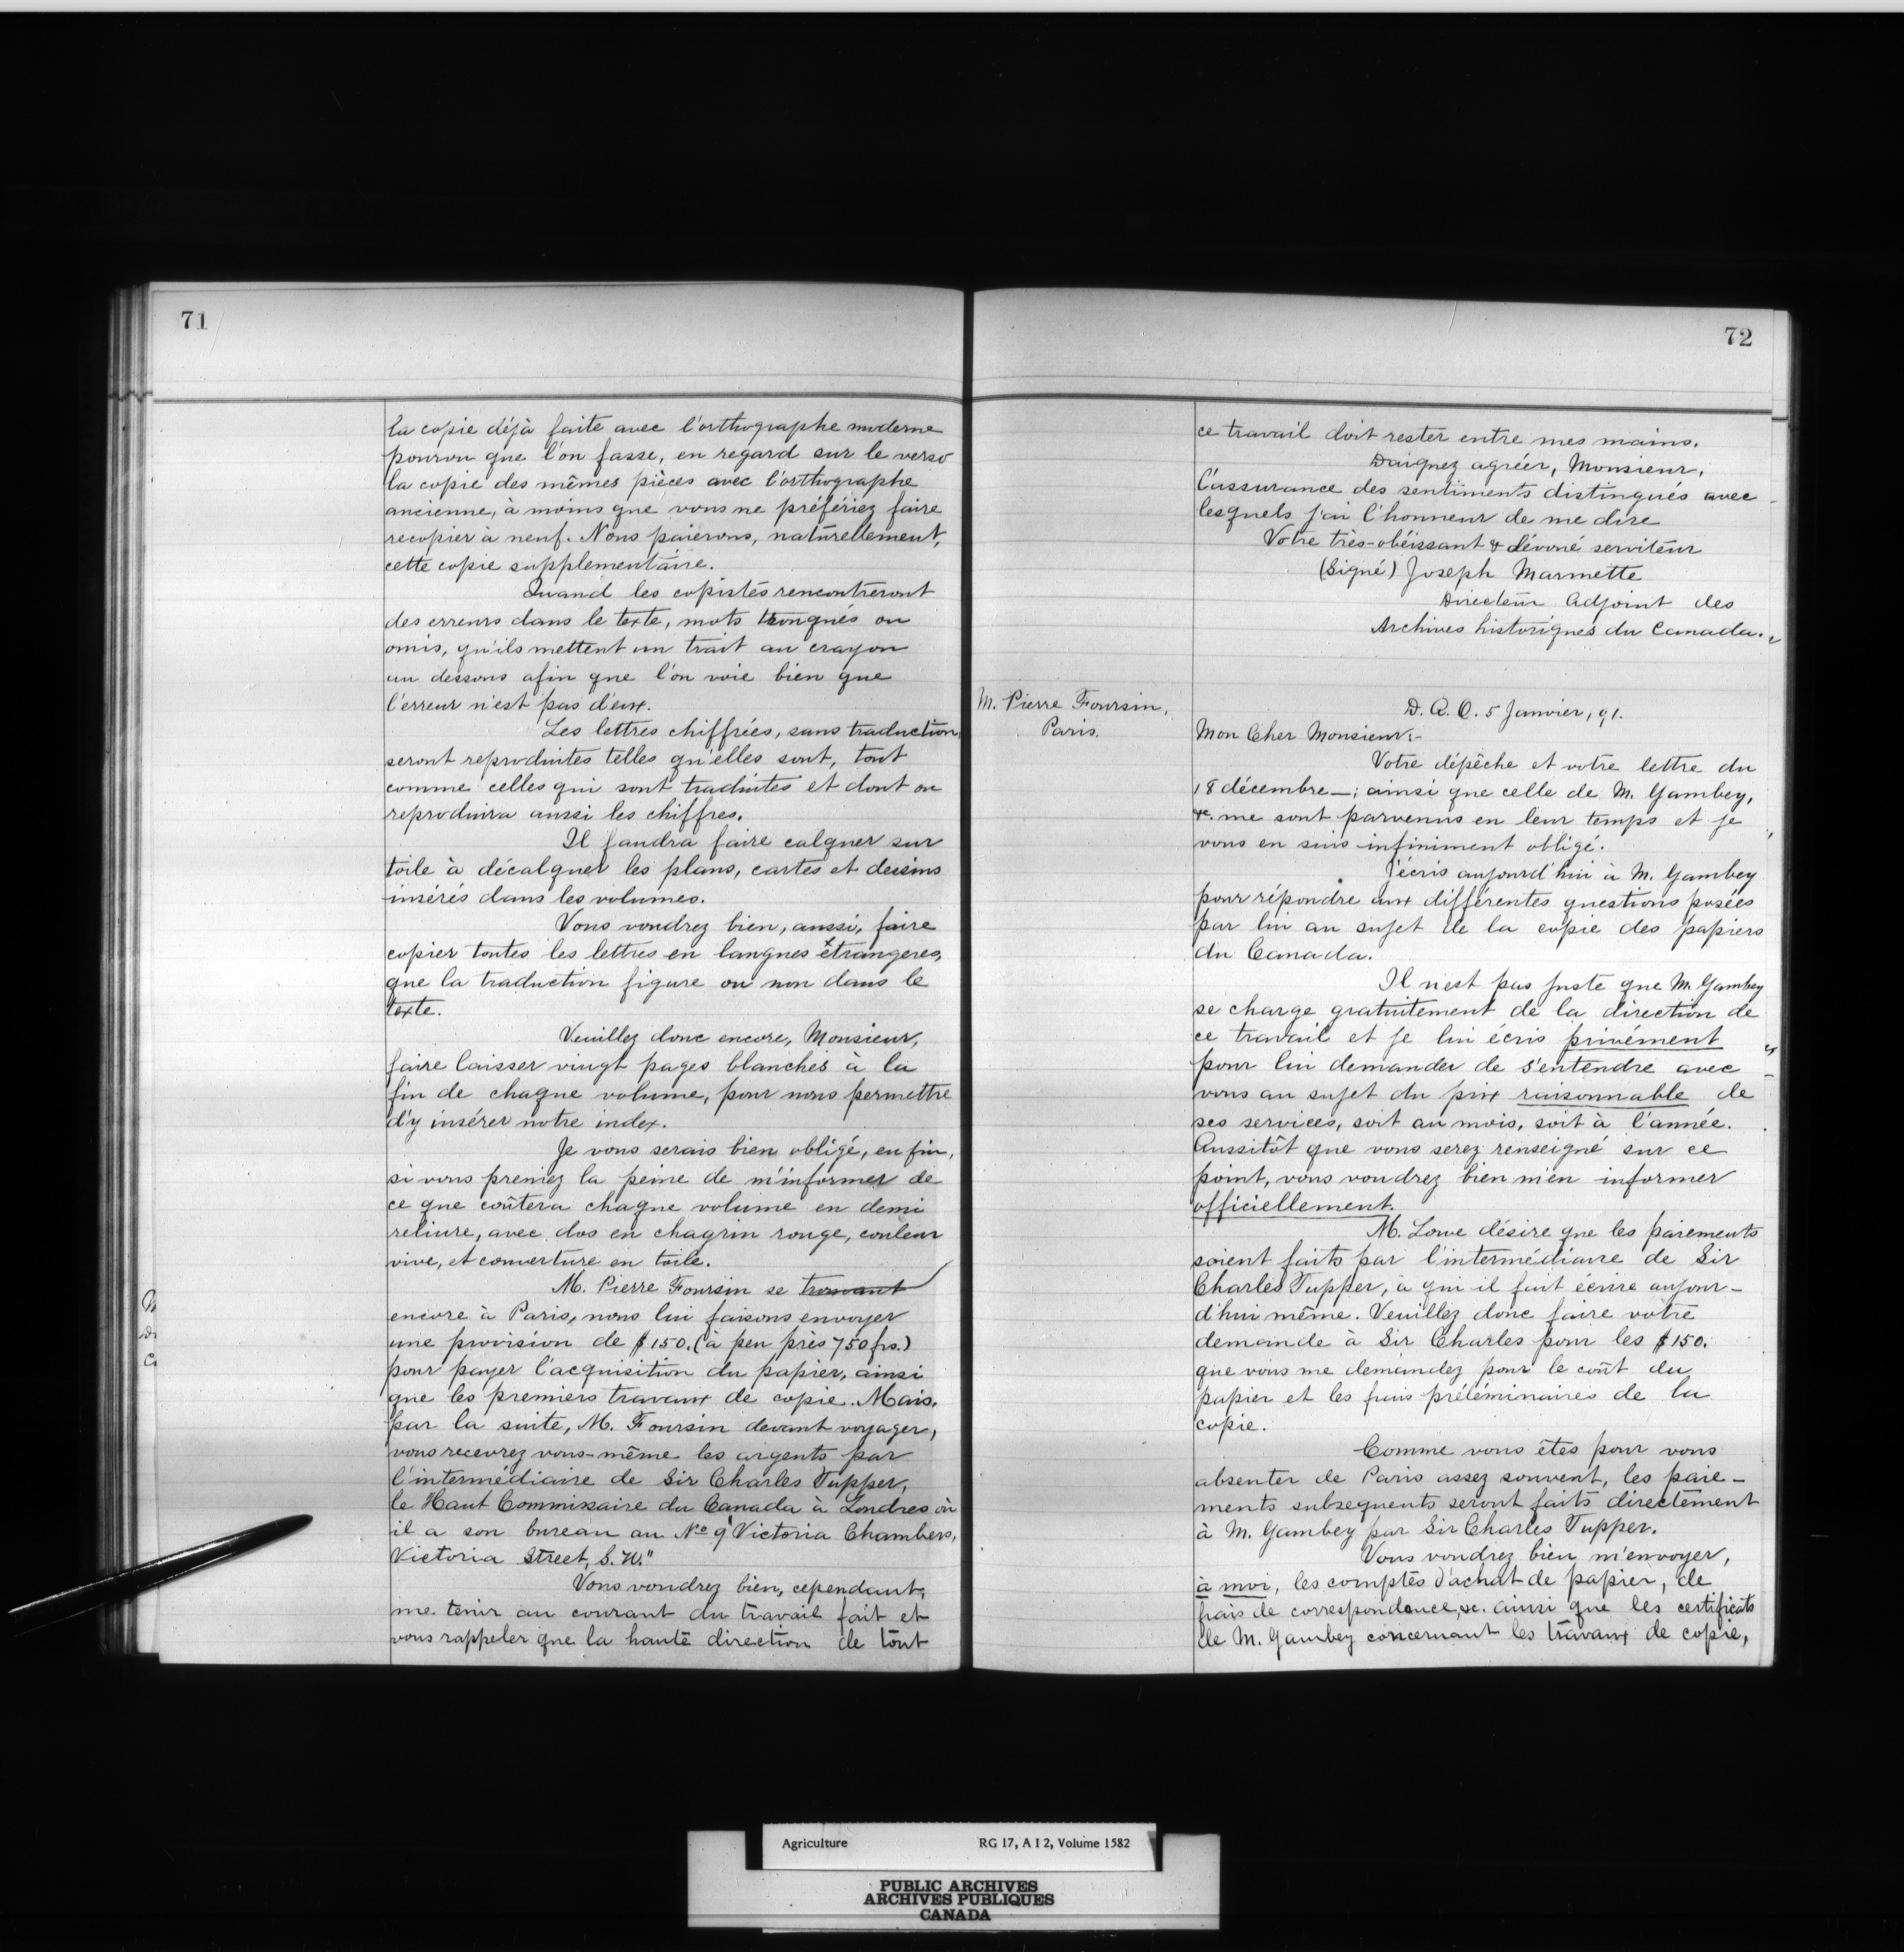 71
la copie déjà faite avec l'orthographe moderne
pourvu que l'on fasse, en regard sur le verso
la copie des mêmes pièces avec l'orthographe
ancienne, à moins que vous ne préfériez faire
recopier à neuf. Nous paierons, naturellement,
cette copie supplementaire.
Quand les copistes rencontreront
des erreurs dans le texte, mots tronqués ou
omis, qu'ils mettent un trait au crayon
au dessous afin que l'on voie bien que
l'erreur n'est pas d'eux.
Les lettres chiffrées, sans traduction,
seront reproduites telles qu'elles sont, tout
comme celles qui sont traduites et dont on
reproduira aussi les chiffres.
Il faudra faire calquer sur
toile à décalquer les plans, cartes et dessins
insérés dans les volumes.
Vous voudrez bien, aussi, faire
copier toutes les lettres en langues étrangeres,
que la traduction figure ou non dans le
texte.
Veuillez donc encore, Monsieur,
faire laisser vingt pages blanches à la
fin de chaque volume, pour nous permettre
d'y insérer notre index.
Je vous serais bien obligé, en fin,
si vous preniez la peine de m'informer de
ce que coûtera chaque volume en demi
reliure, avec dos en chagrin rouge, couleur
vive, et couverture en toile.
M. Pierre Foursin se trouvant
encore à Paris, nous lui faisons envoyer
une provision de $150. (à peu près 750 frs.)
pour payer l'acquisition du papier, ainsi
que les premiers travaux de copie. Mais,
par la suite, M. Foursin devant voyager,
vous recevrez vous-même les argents par
l'intermédiaire de Sir Charles Tupper,
le Haut Commissaire du Canada à Londres où
il a son bureau au No 9 Victoria Chambers,
Victoria Street, S.W."
Vous voudrez bien, cependant,
me tenir au courant du travail fait et
vous rappeler que la haute direction de tout
72
ce travail doit rester entre mes mains.
Daignez agréer, Monsieur,
l'assurance des sentiments distingués avec
lesquels j'ai l'honneur de me dire
Votre très-obéissant & dévoué serviteur
(Signé) Joseph Marmette
Directeur Adjoint des
Archives historiques du Canada.
M. Pierre Foursin,
Paris.
D. A. O. 5 Janvier, 91.
Mon Cher Monsieur:-
Votre dépêche et votre lettre du
18 décembre—; ainsi que celle de M. Gambey,
&c. me sont parvenus en leur temps et je
vous en suis infiniment obligé.
J'écris aujourd'hui à M. Gambey
pour répondre aux différentes questions posées
par lui au sujet de la copie des papiers
du Canada.
Il n'est pas juste que M. Gambey
se charge gratuitement de la direction de
ce travail et je lui écris privément
pour lui demander de s'entendre avec
vous au sujet du prix raisonnable de
ses services, soit au mois, soit à l'année.
Aussitôt que vous serez renseigné sur ce
point, vous voudrez bien m'en informer
officiellement.
M. Lowe désire que les paiements
soient faits par l'intermédiaire de Sir
Charles Tupper, à qui il fait écrire aujour-
d'hui même. Veuillez donc faire votre
demande à Sir Charles pour les $150.
que vous me demandez pour le coût du
papier et les frais préléminaires de la
copie.
Comme vous êtes pour vous
absenter de Paris assez souvent, les paie-
ments subsequents seront faits directement
à M. Gambey par Sir Charles Tupper.
Vous voudrez bien m'envoyer,
à moi, les comptes d'achat de papier, de
frais de correspondence, &c. ainsi que les certificats
de M. Gambey concernant les travaux de copie,
Agriculture RG 17, A I 2, Volume 1582
PUBLIC ARCHIVES
ARCHIVES PUBLIQUES
CANADA